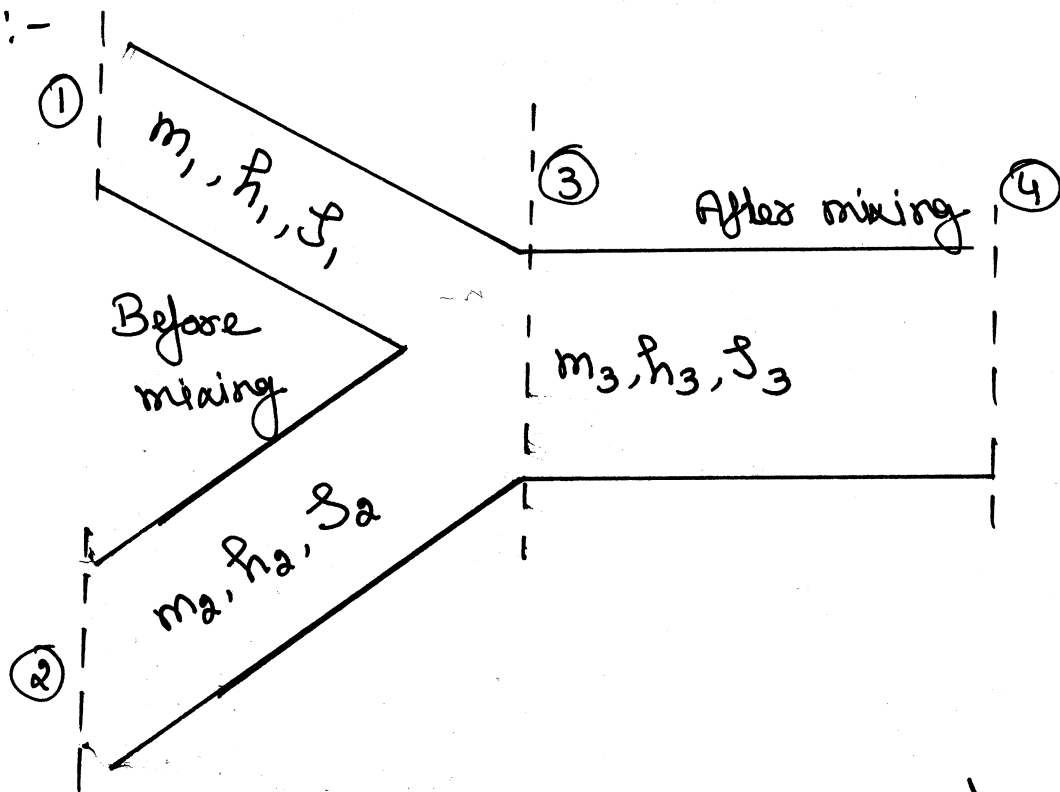 :-
①
m₁, h₁, S₁
③
④
After mixing
Before
mixing
m₃, h₃, S₃
m₂, h₂, S₂
②